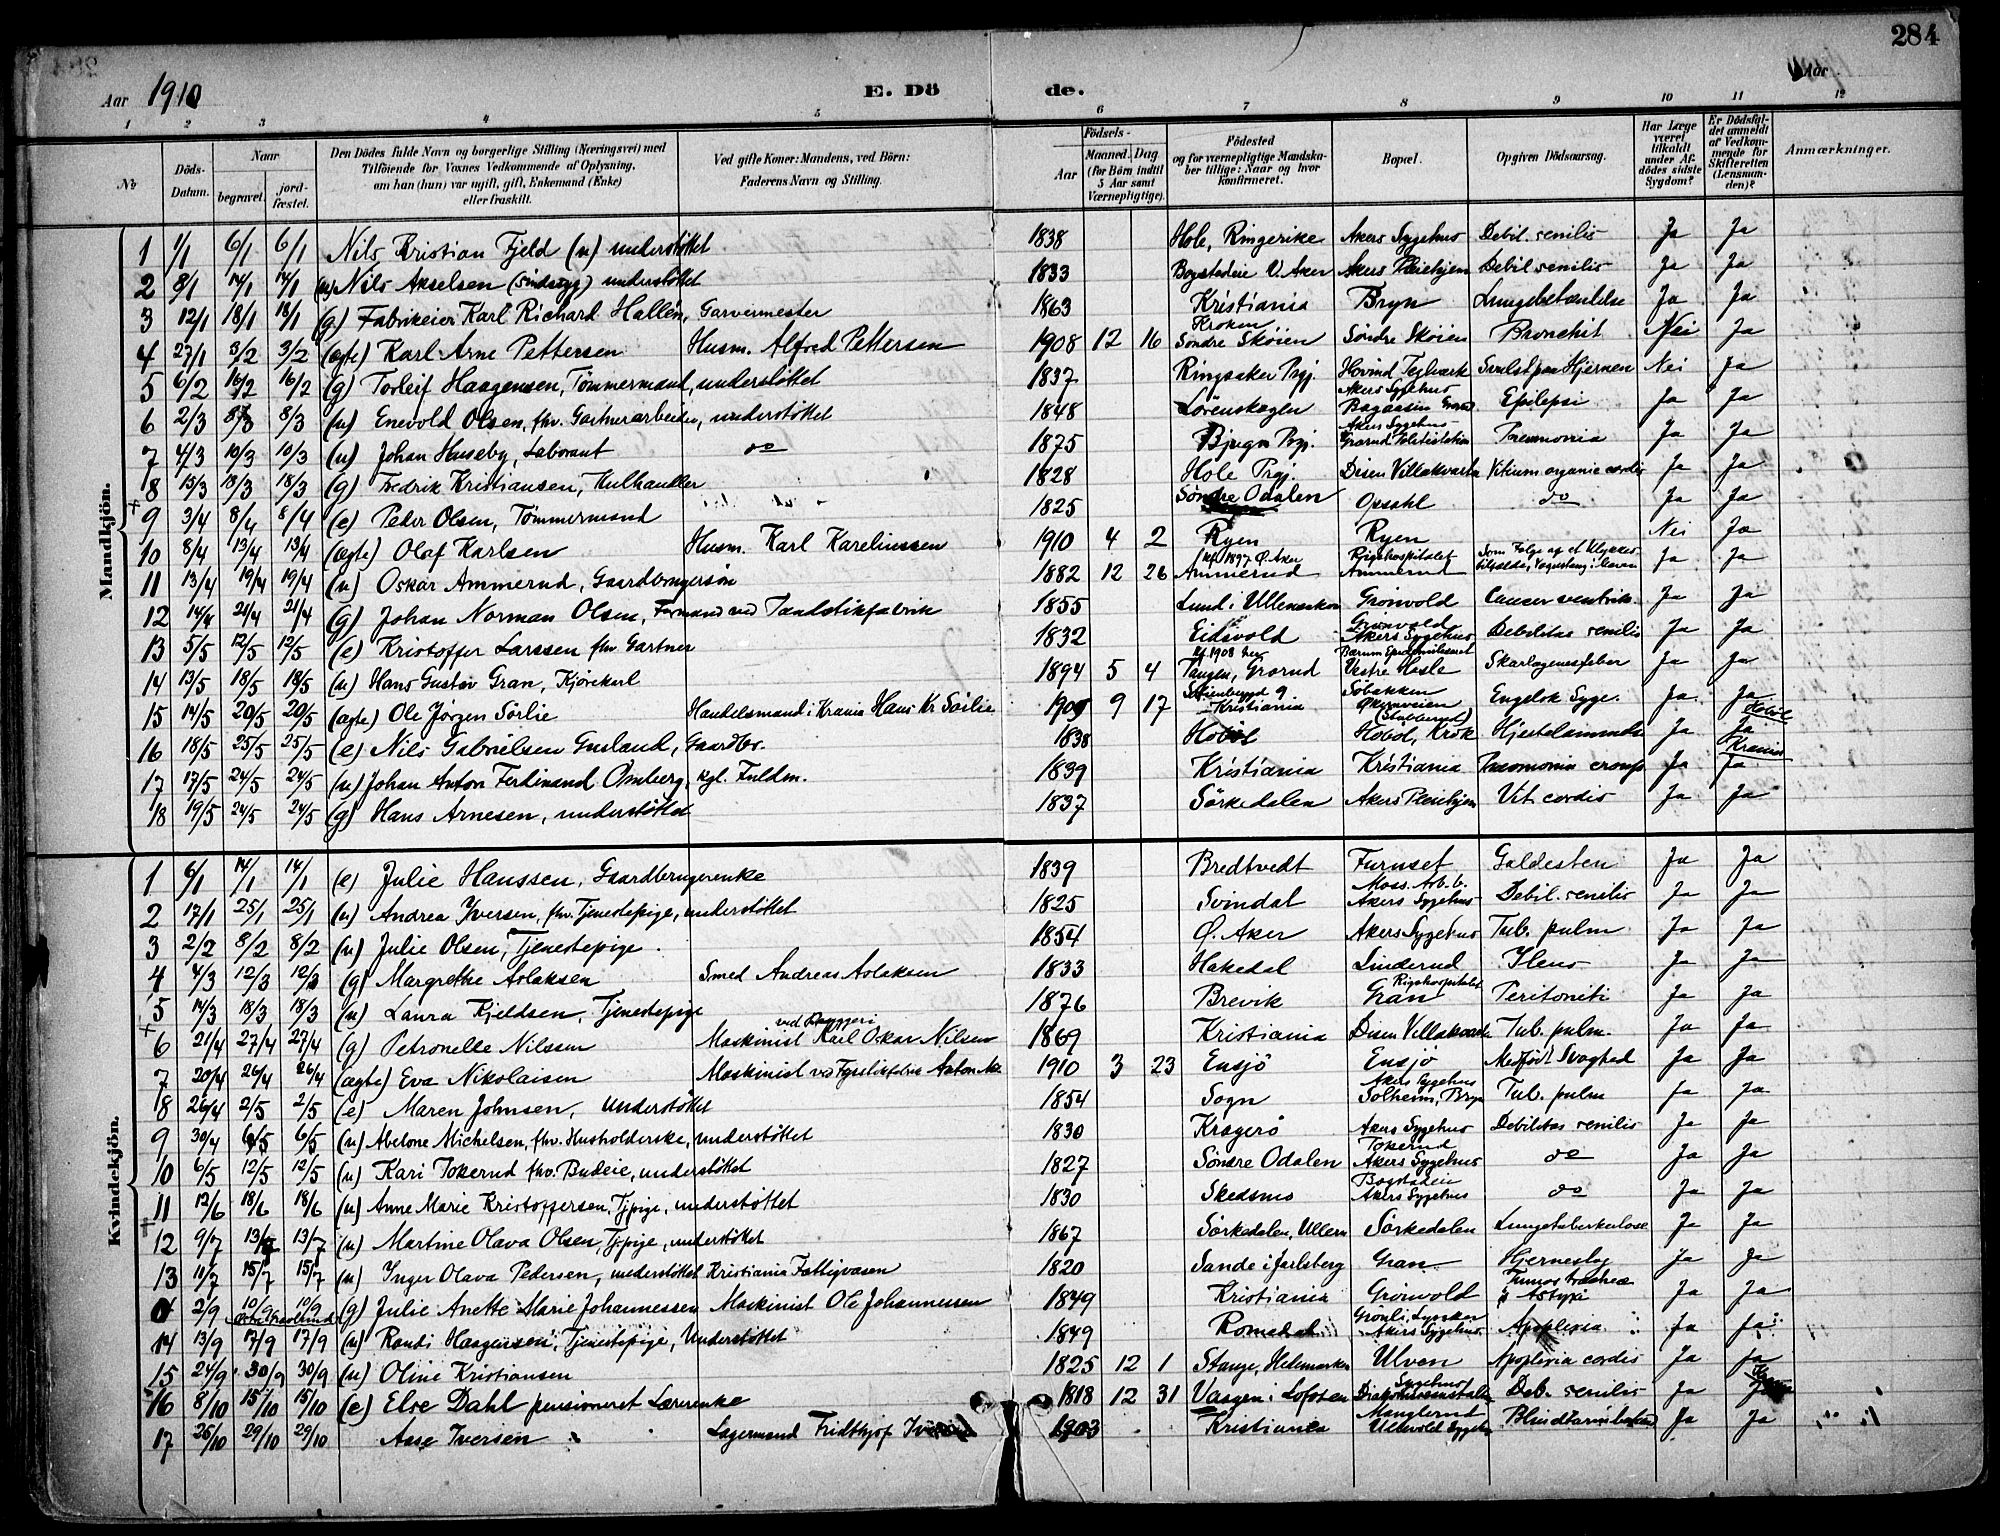 284
Aar 1910 E. Dö de. Aar
1 2 3 4 5 6 7 8 9 10 11 12
No
Döds-Datum.
Naar
begravet.
jord-fæstet.
Den Dödes fulde Navn og borgerlige Stilling (Næringsvei) med
Tilföiende for Voxnes Vedkommende af Oplysning,
om han (hun) var ugift, gift, Enkemand (Enke)
eller fraskilt.
Ved gifte Koner: Mandens, ved Börn:
Faderens Navn og Stilling.
Födsels-
Aar
Maaned. Dag
(for Börn indtil
5 Aar samt
Værnepligtige).
Födested
og for værnepligtige Mandska-
ber tillige: Naar og hvor
konfirmeret.
Bopæl.
Opgiven Dödsaarsag.
Har Læge
været
tilkaldt
under Af-
dödes sidste
Sygdom?
Er Dödsfal-
det anmeldt
af Vedkom-
mende for
Skifteretten
(Lensman-
den)?
Anmærkninger.
Mandkjön.
1 1/1 6/1 6/1 Nils Kristian Fjeld (u) understöttet 1838 Hole, Ringerike Akers Sygehus Debil. senilis Ja Ja
2 8/1 14/1 14/1 (u) Nils Akselsen (sindssyg) understöttet 1833 V. Aker Akers Pleiehjem Debil senilis Ja Ja
3 12/1 18/1 18/1 (g) Fabrikeier Karl Richard Hallén, Garvermester 1863 Kristiania Bryn Lungebetændelse Ja Ja
4 27/1 3/2 3/2 (ægte) Karl Arne Pettersen Husm. Alfred Pettersen 1908 12 16 Kroken Söndre Skøien Söndre Skøien Bronchit Nei Ja
5 6/2 16/2 16/2 (g) Torleif Haagensen, Tömmermand, understöttet 1837 Ringsaker Prgj. Hovind Teglværk Svulst paa Hjernen Nei Ja
6 2/3 8/3 8/3 (u) Enevold Olsen, fhv. Gartnerarbeider, understöttet 1848 Lørenskogen Akers Sygehus Epilepsi Ja Ja
7 4/3 10/3 10/3 (u) Johan Huseby, Laborant do 1875 Bjugn Prgj. Akers Sygehus Grorud Pneumonia Ja Ja
8 13/3 18/3 18/3 (g) Fredrik Kristiansen, Kulhandler 1828 Hole Prgj. Disen Villakvarter Vitium organic cordis Ja Ja
9 3/4 8/4 8/4 (e) Peder Olsen, Tömmermand 1825 Søndre Odalen Opsahl do Ja Ja
10 8/4 13/4 13/4 (ægte) Olaf Karlsen Husm. Karl Kareliussen 1910 4 2 Ryen Ryen Nei Ja
11 13/4 19/4 19/4 (u) Oskar Ammerud, Gaardbrugersøn 1882 12 26 (kfl 1897 Ø. Aker Ammerud Rigshospitalet Ammerud Som Følge af et Ulykkes- Ja Ja
12 14/4 21/4 21/4 (g) Johan Norman Olsen, Formand ved Tændstikfabrik 1855 Lund i Ullensaker Grönvold Cancer ventrik. Ja Ja
13 5/5 12/5 12/5 (e) Kristoffer Larssen fhv. Gartner 1832 Eidsvold Grönvold Akers Sygehus Debilitas senilis Ja Ja
14 13/5 18/5 18/5 (u) Hans Gustav Gran, Kjörekarl 1894 5 4 kf. 1908 her Tangen, Grorud Bærum Epidemilasaret Vestre Hasle Skarlagensfeber Ja Ja
15 14/5 20/5 20/5 (ægte) Ole Jørgen Sörlie Handelsmand i Krania Hans Kr Sörlie 1909 9 17 Kristiania Søbakken Økernveien Engelsk Syge. Ja Ja
16 18/5 25/5 25/5 (e) Nils Gabrielsen Gusland, Gaardbr. 1838 Hobøl (Stubberud) Hobøl, Krok Hjertelammelse Ja Hobøl Ja
17 17/5 24/5 24/5 (u) Johan Anton Ferdinand Omberg, kgl. Fuldm. 1839 Kristiania Kristiania Pneumonia croup. Ja Krania Ja
18 19/5 24/5 24/5 (g) Hans Arnesen, understöttet 1837 Sörkedalen Akers Pleiehjem Vit. cordis Ja Ja
Kvindekjön.
1 6/1 14/1 14/1 (e) Julie Hanssen, Gaardbrugerenke 1839 Bredtvedt Furuset Galdesten Ja Ja
2 17/1 25/1 25/1 (u) Andrea Iversen, fhv. Tjenestepige, understöttet 1825 Svindal Moss. Arb. b. Akers Sygehus Debil. senilis Ja Ja
3 2/2 8/2 8/2 (u) Julie Olsen, Tjenestepige 1854 Ø. Aker Akers Sygehus Tub. pulm Ja Ja
4 4/3 12/3 12/3 (g) Margrethe Aslaksen Smed Andreas Aslaksen 1833 Hakedal Linderud Ileus Ja Ja
5 14/3 18/3 18/3 (u) Laura Kjeldsen, Tjenestepige 1876 Brevik Rigshospitalet Gran Peritoniti Ja Ja
6 21/4 27/4 27/4 (g) Petronelle Nilssen Maskinist ved Karl Oskar Nilsen 1869 Kristiania Disen Villakvarter Tub. pulm. Ja Ja
7 20/4 26/4 26/4 (ægte) Eva Nikolaisen Maskinist ved Fyrstikfabrik Anton 1910 3 23 Ensjö Ensjö Medfödt Svaghed Ja Ja
8 26/4 2/5 2/5 (e) Maren Johnsen, Understöttet 1854 Sogn Akers Sygehus Solheim, Bryn Tub. pulm Ja Ja
9 30/4 6/5 6/5 (u) Abelone Michelsen, fhv. Husholderske, understöttet 1830 Kragerö Akers Sygehus Debilitas senilis Ja Ja
10 6/5 12/5 12/5 (u) Kari Tokerud fhv. Budeie, understöttet 1827 Söndre Odalen Tokerud Akers Sygehus do Ja Ja
11 12/6 18/6 18/6 (u) Anne Marie Kristoffersen, Tjpige, understöttet 1830 Skedsmo Bogstadveien Akers Sygehus do Ja Ja
12 9/7 13/7 13/7 (u) Martine Olava Olsen, Tjpige, understöttet 1867 Sörkedalen, Ullern Sörkedalen Lungetuberkulose Ja Ja
13 11/7 15/7 15/7 (u) Inger Olava Pedersen, understöttet Kristiania Fattigvæsen 1820 Sande i Jarlsberg Gran Hjerneslag Ja Ja
2/9 10/9 10/9 (g) Julie Anette Marie Johannessen Maskinist Ole Johannessen 1849 Kristiania Grönvold Tumor tracheæ Ja Ja
14 13/9 17/9 17/9 (u) Randi Haagensen, Tjenestepige, Understöttet 1849 Romedal Akers Sygehus Apoplexia Ja Ja
15 24/9 30/9 30/9 (u) Oline Kristiansen 1825 12 1 Stange, Hedemarken Ulven Apoplexia cordis Ja Ja
16 8/10 15/10 15/10 (e) Else Dahl pensioneret Lærerenke 1818 12 31 Vaagen i Lofoten Deb. senilis Ja Ja
17 25/10 29/10 29/10 Aase Iversen Lagermand Fridthjof Iversen 1903 Kristiania Manglerud Ullevold Sygehus Blindtarmbetænd Ja Ja